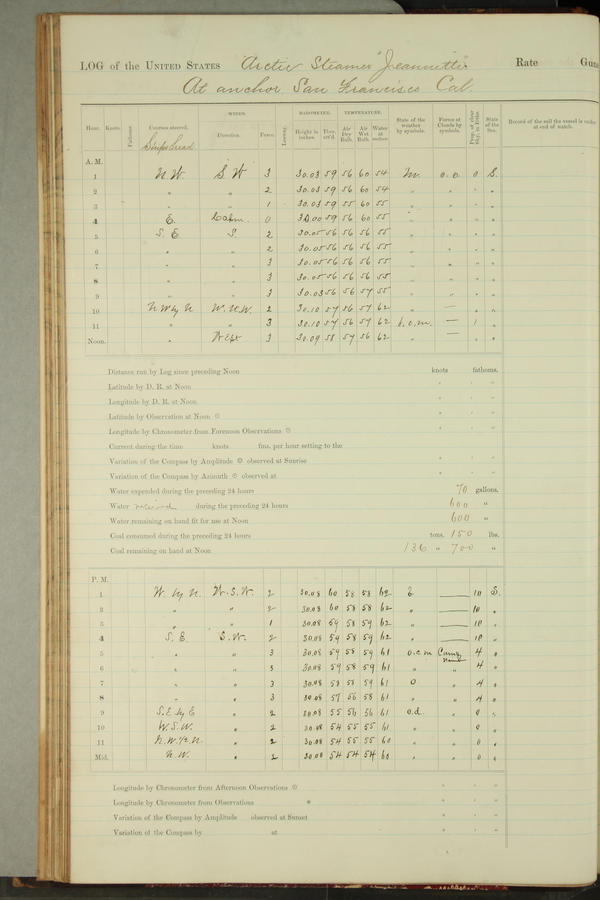 LOG of the UNITED STATES Arctic Steamer "Jeannette" Rate
At anchor San Francisco Cal.
Hour. Knots. Fathoms. Courses steered. WINDS. Direction. Force. Leeway. BAROMETER. Height in inches. Ther. att'd. TEMPERATURE. Air Dry Bulb. Air Wet Bulb. Water at surface. State of the weather by symbols. Forms of Clouds by symbols. Prop. of clear Sky, in 10ths. State of the Sea. Record of the sail the vessel is under at end of watch.
Ships head
A. M.
1 N.W. S.W. 3 30.03 59 56 60 54 m. 0.0. 0 S.
2 " " 2 30.03 59 56 60 54 " " " "
3 " " 1 30.03 59 55 60 55 " " " "
4 E. Calm. 0 30.00 59 56 60 55 " " " "
5 S. E. S. 2 30.05 56 56 56 55 " " " "
6 " " 2 30.05 56 56 56 55 " " " "
7 " " 3 30.05 56 56 56 55 " " " "
8 " " 3 30.05 56 56 56 55 " " " "
9 " " 3 30.03 56 56 57 55 " " " "
10 N W by N W. N.W. 2 30.10 57 56 57 62 " — " "
11 " " 3 30.10 57 56 57 62 b.c.m. — 1 "
Noon. " West 3 30.09 58 57 56 62 " — " "
Distance run by Log since preceding Noon knots fathoms.
Latitude by D. R. at Noon ° ' "
Longitude by D. R. at Noon ° ' "
Latitude by Observation at Noon ☉ ° ' "
Longitude by Chronometer from Forenoon Observations ☉ ° ' "
Current during the time knots fms. per hour setting to the
Variation of the Compass by Amplitude ☉ observed at Sunrise ° ' "
Variation of the Compass by Azimuth ☉ observed at ° ' "
Water expended during the preceding 24 hours 70 gallons.
Water received during the preceding 24 hours 600 "
Water remaining on hand fit for use at Noon 600 "
Coal consumed during the preceding 24 hours tons. 150 lbs.
Coal remaining on hand at Noon 136 " 700 "
P. M.
1 W. by N. W. S. W. 2 30.08 60 58 58 62 — 10 S.
2 " " 2 30.08 60 58 58 62 " — 10 "
3 " " 1 30.08 59 58 59 62 " — 10 "
4 S. E. S. W. 2 30.08 59 58 59 62 " — 10 "
5 " " 3 30.08 59 58 59 61 o.c.m 4 "
6 " " 3 30.08 59 58 59 61 " " 4 "
7 " " 3 30.08 58 58 59 61 o " 4 "
8 " " 3 30.08 57 56 58 61 " " 4 "
9 S.E by E " 2 30.08 55 56 56 61 o.d. " 0 "
10 W.S.W. " 2 30.08 54 55 55 61 " " 0 "
11 " 2 30.08 54 55 55 60 " " 0 "
Mid. N.W. " 2 30.08 54 54 54 60 " " 0 "
Longitude by Chronometer from Afternoon Observations ☉ ° ' "
Longitude by Chronometer from Observations * ° ' "
Variation of the Compass by Amplitude observed at Sunset ° ' "
Variation of the Compass by at ° ' "